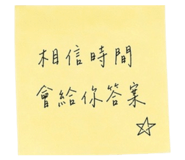 相信時間
會給你答案